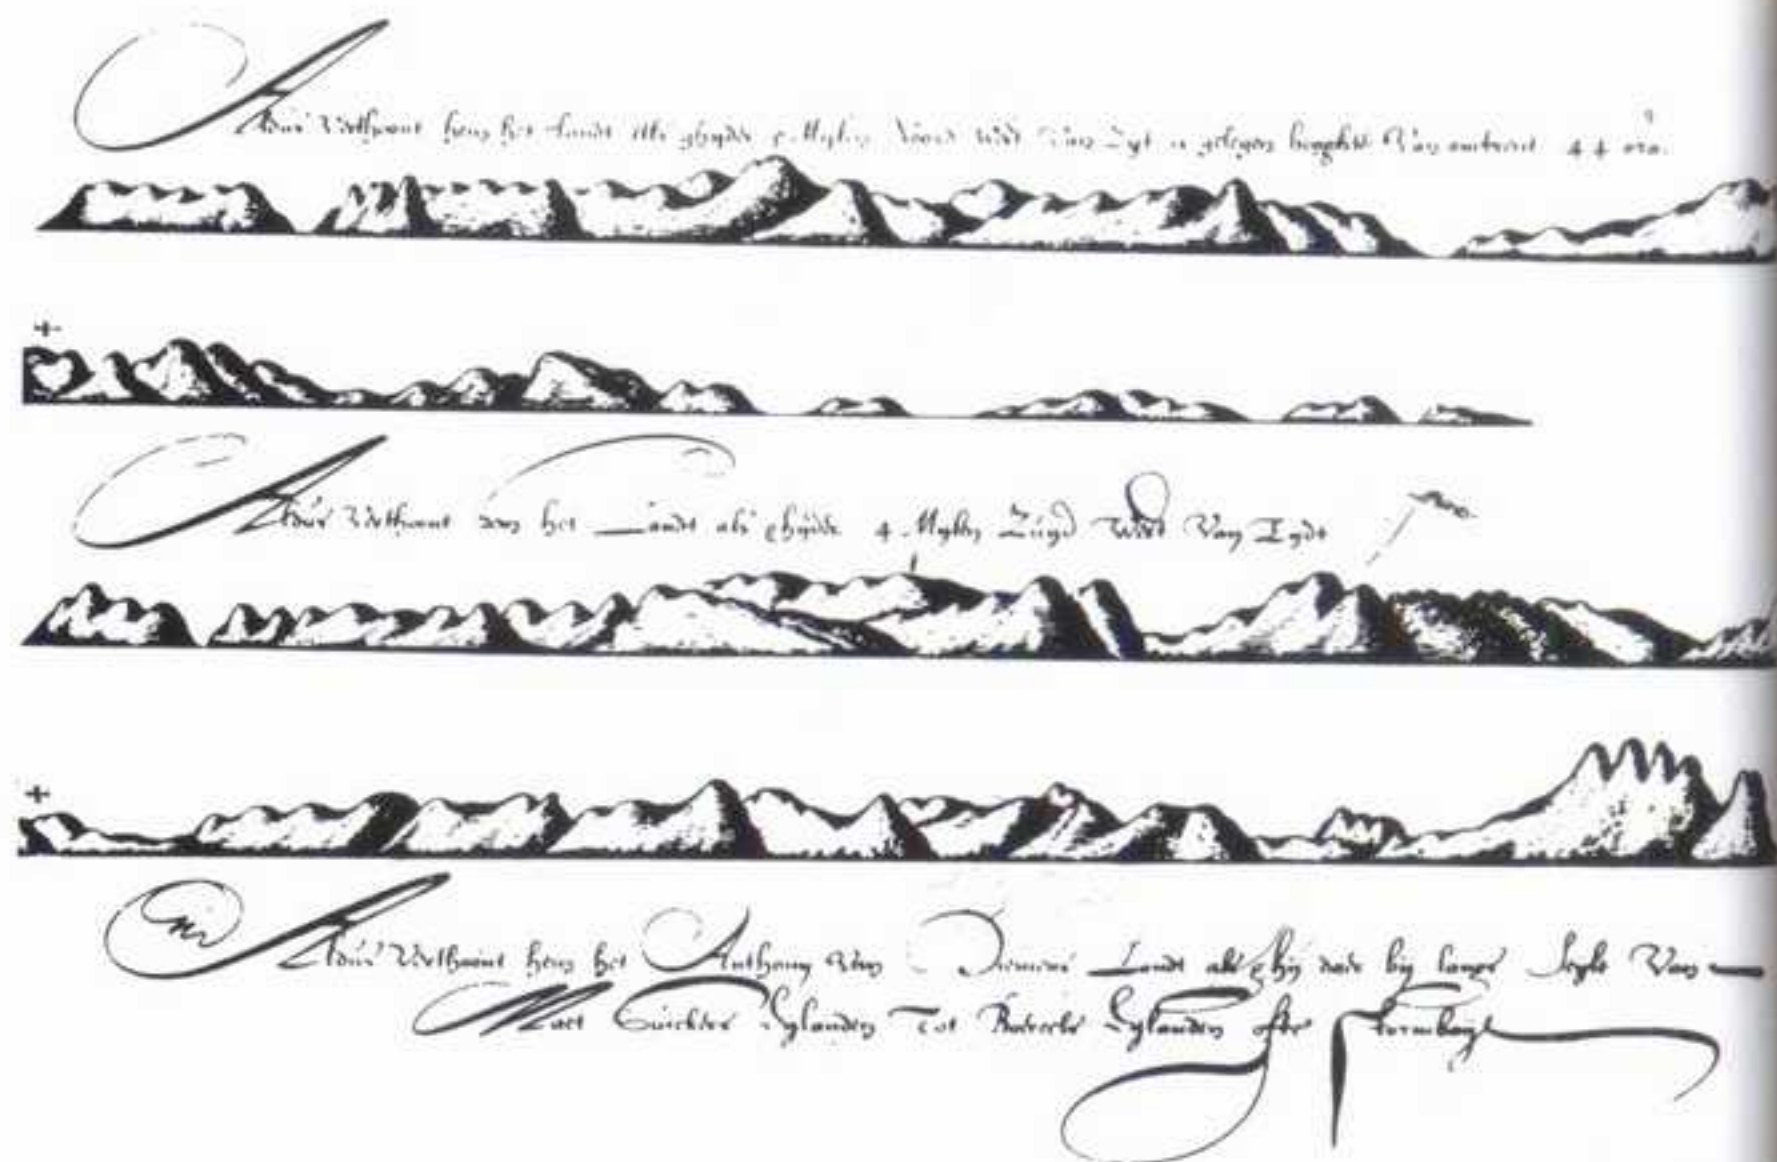 Aldus Verthoont hem het Landt als ghydt 5 Mylen Noord West Van Zyt gelegen hooghte Van omtrent 44 gra.
Aldus Verthoont hem het Landt als ghydt 4 Mylen Zuyd West Van Zydt
Aldus Verthoont hem het Anthony Van Diemens Landt als ghy daer by langs seylt Van
Maet Suickers Eylanden Tot Boereels Eylanden ofte stormbay